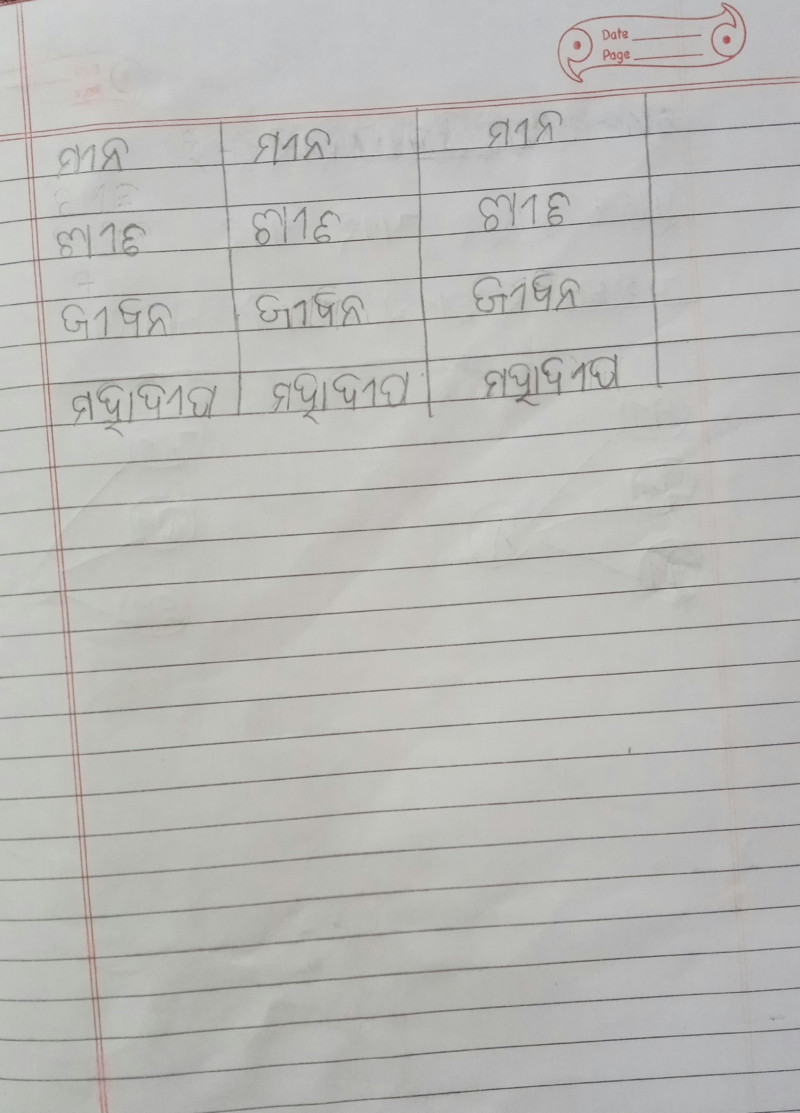 Date
Page
ମୀନ ମୀନ ମୀନ
ଶୀତ ଶୀତ ଶୀତ
ଜୀବନ ଜୀବନ ଜୀବନ
ମହାଦୀପ ମହାଦୀପ ମହାଦୀପ